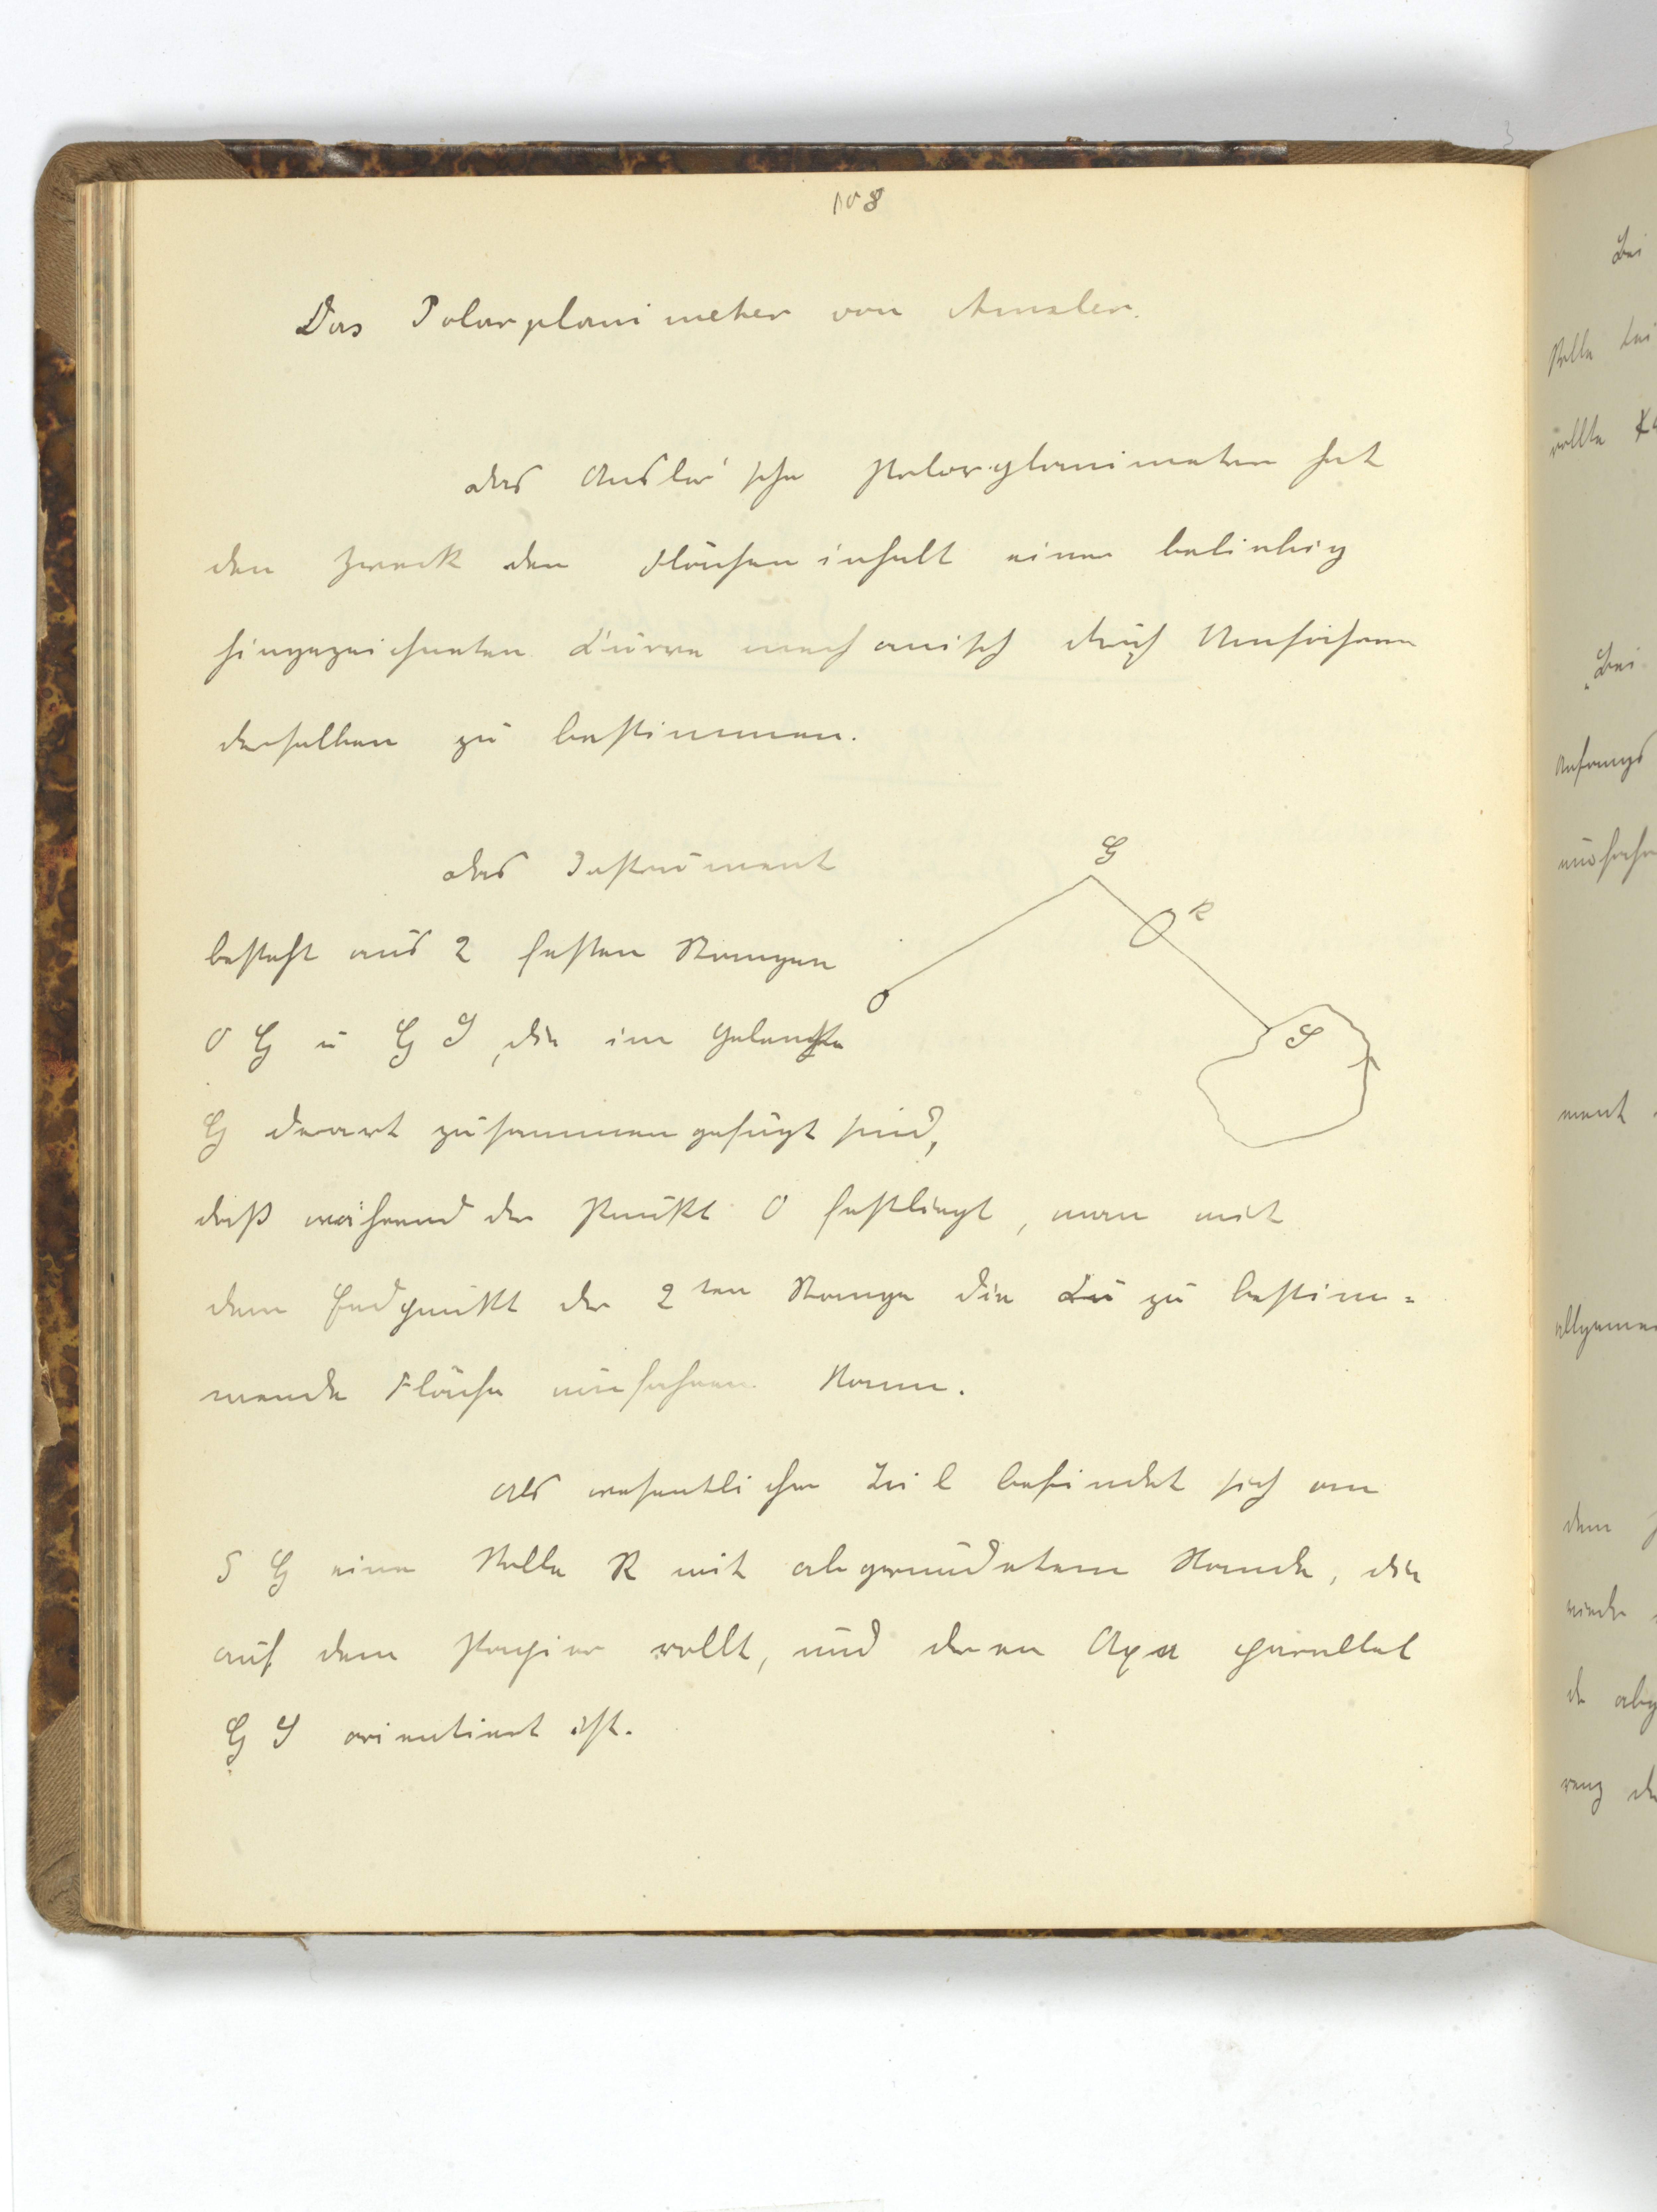 108
Das Polarplanimeter von Amsler.
Das Amsler'sche Polarplanimeter hat
den Zweck den Flächeninhalt einer beliebig
hingezeichneten Curve mechanisch durch Umfahren
derselben zu bestimmen.
Das Instrument
besteht aus 2 festen Stangen
O G u G S, die im Gelenke
G derart zusammengefügt sind,
daß während der Punkt O festliegt, man mit
dem Endpunkt der 2ten Stange die zu bestim=
mende Fläche umfahren kann.
Als wesentlicher Teil befindet sich an
S G eine Rolle R mit abgerundetem Rande, die
auf dem Papier rollt, und deren Axe parallel
G S orientiert ist.
G
R
O
S